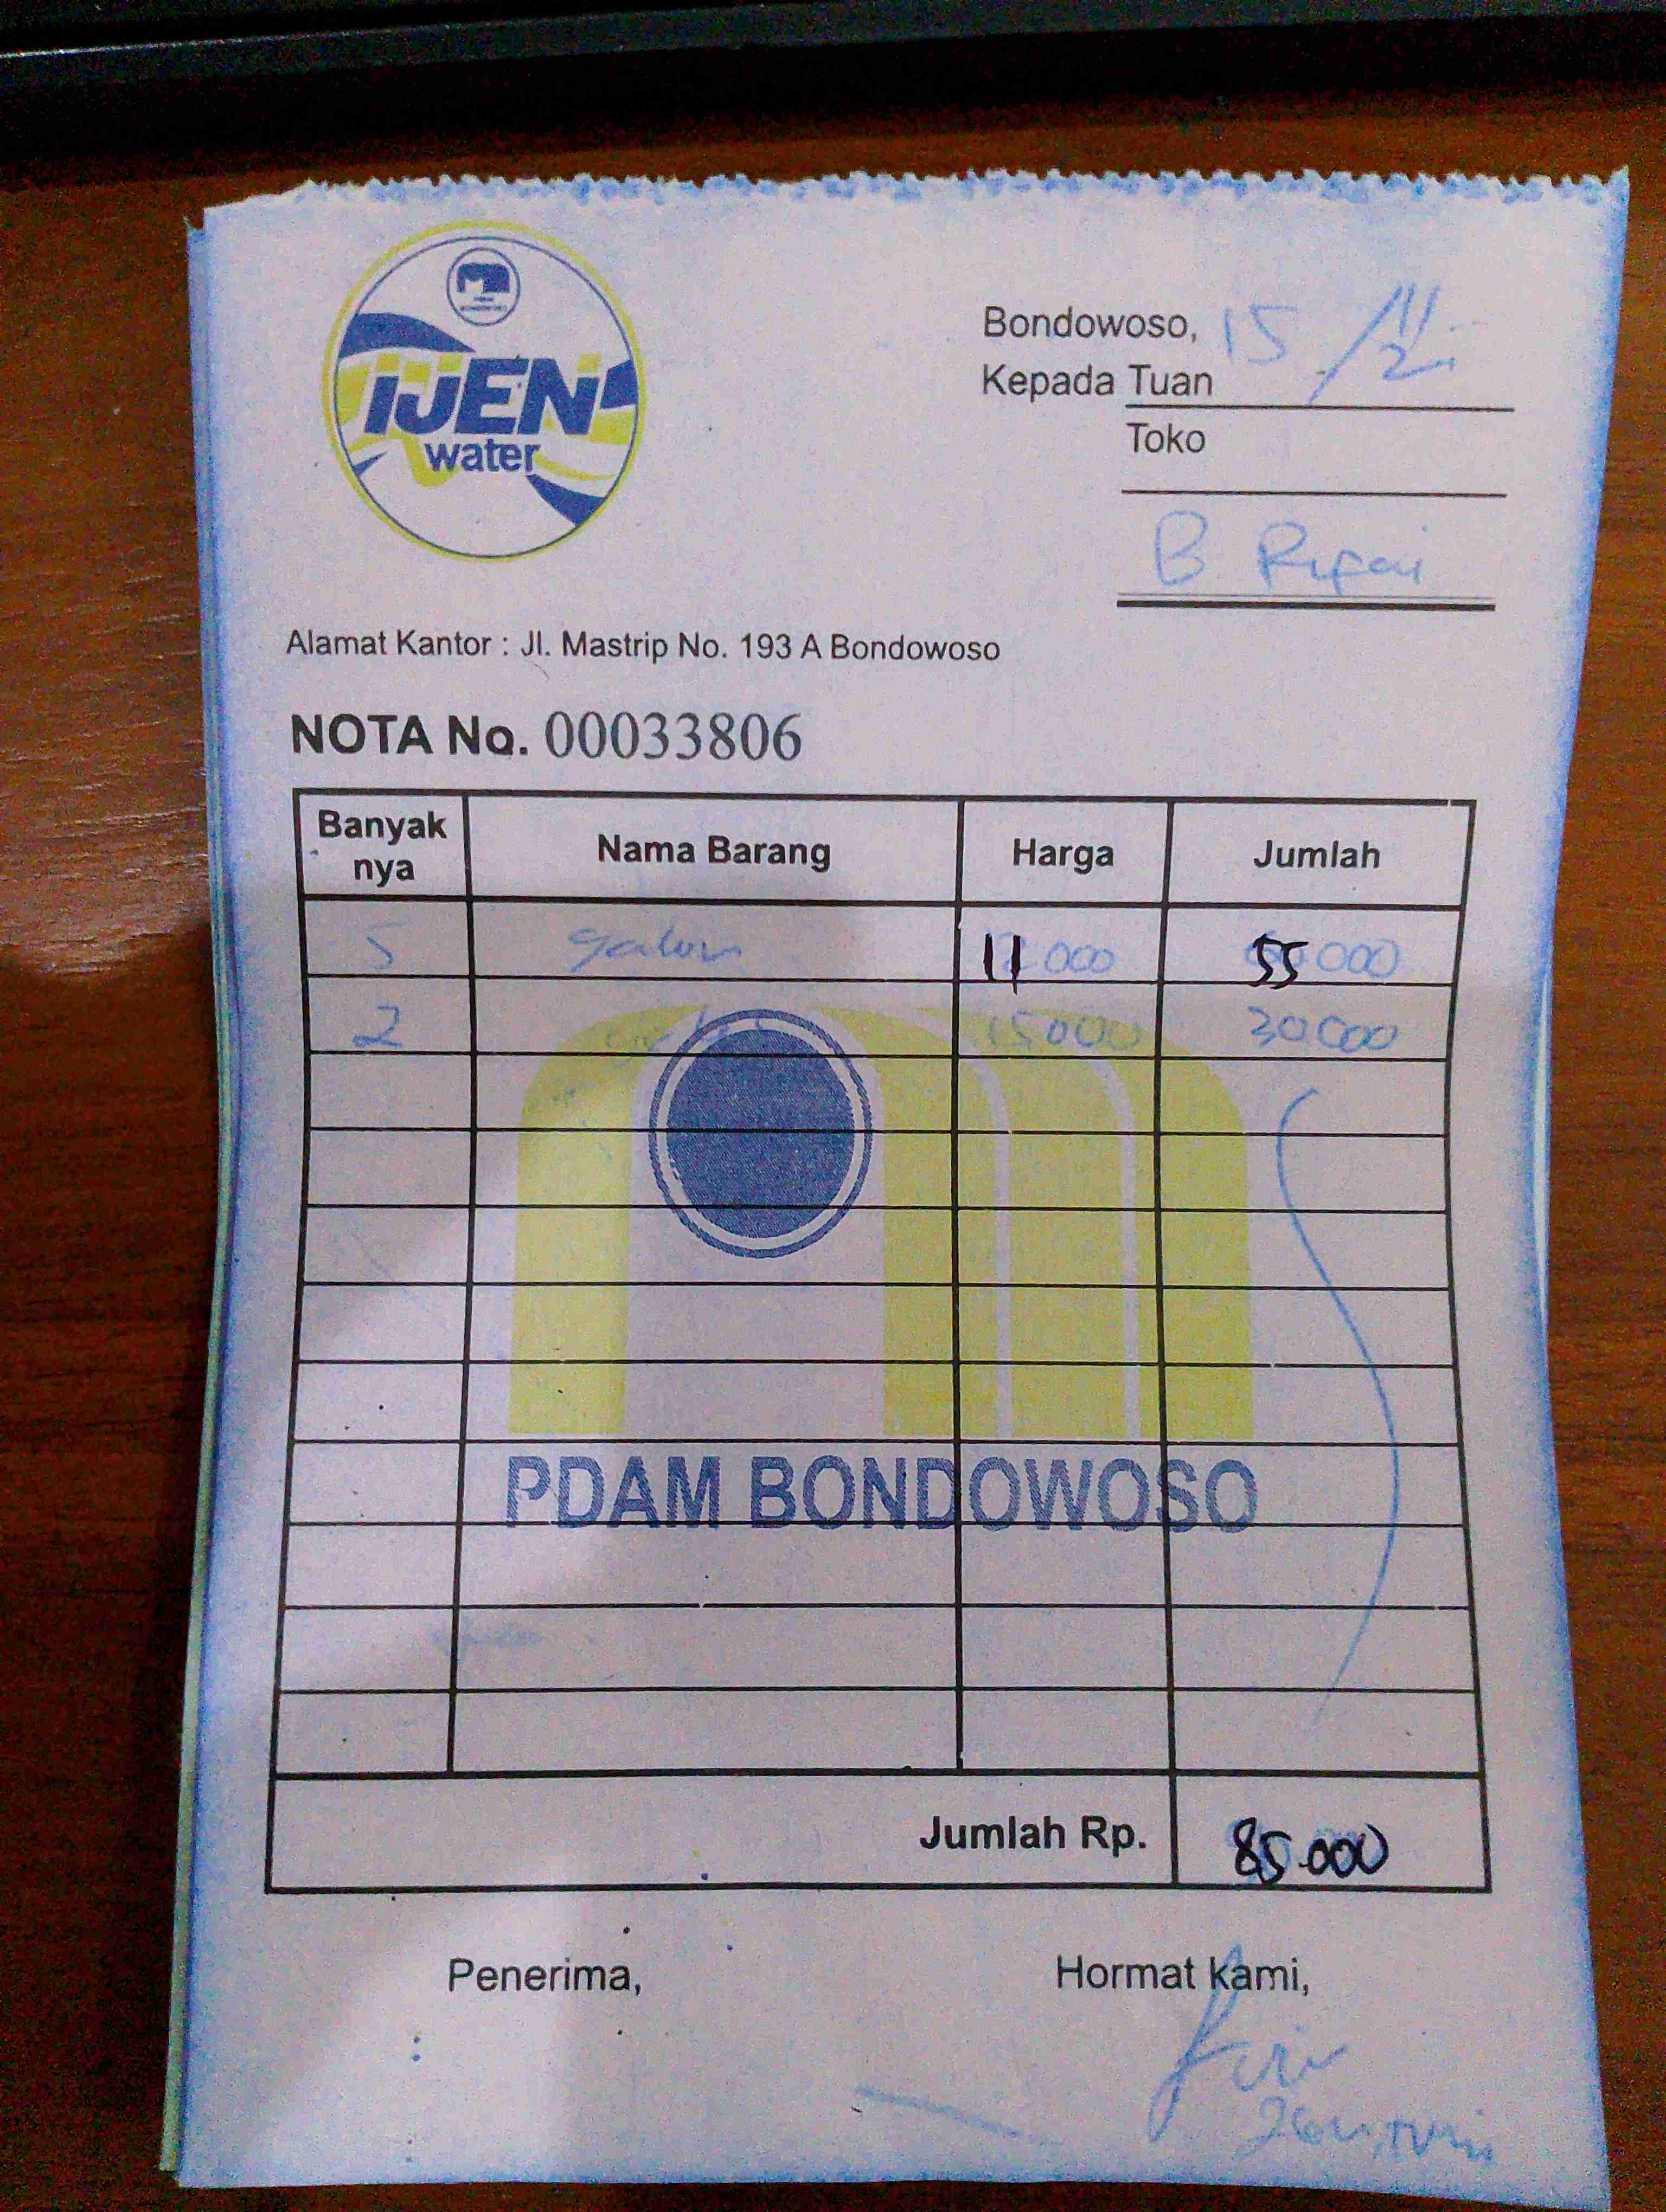 IJEN
water
Bondowoso, 15/11
Kepada Tuan
Toko
B. Rifai
Alamat Kantor : Jl. Mastrip No. 193 A Bondowoso
NOTA No. 00033806
Banyak nya Nama Barang Harga Jumlah
5 galon 11 000 55 000
2 15 000 30 000
PDAM BONDOWOSO
Jumlah Rp. 85.000
Penerima, Hormat Kami,